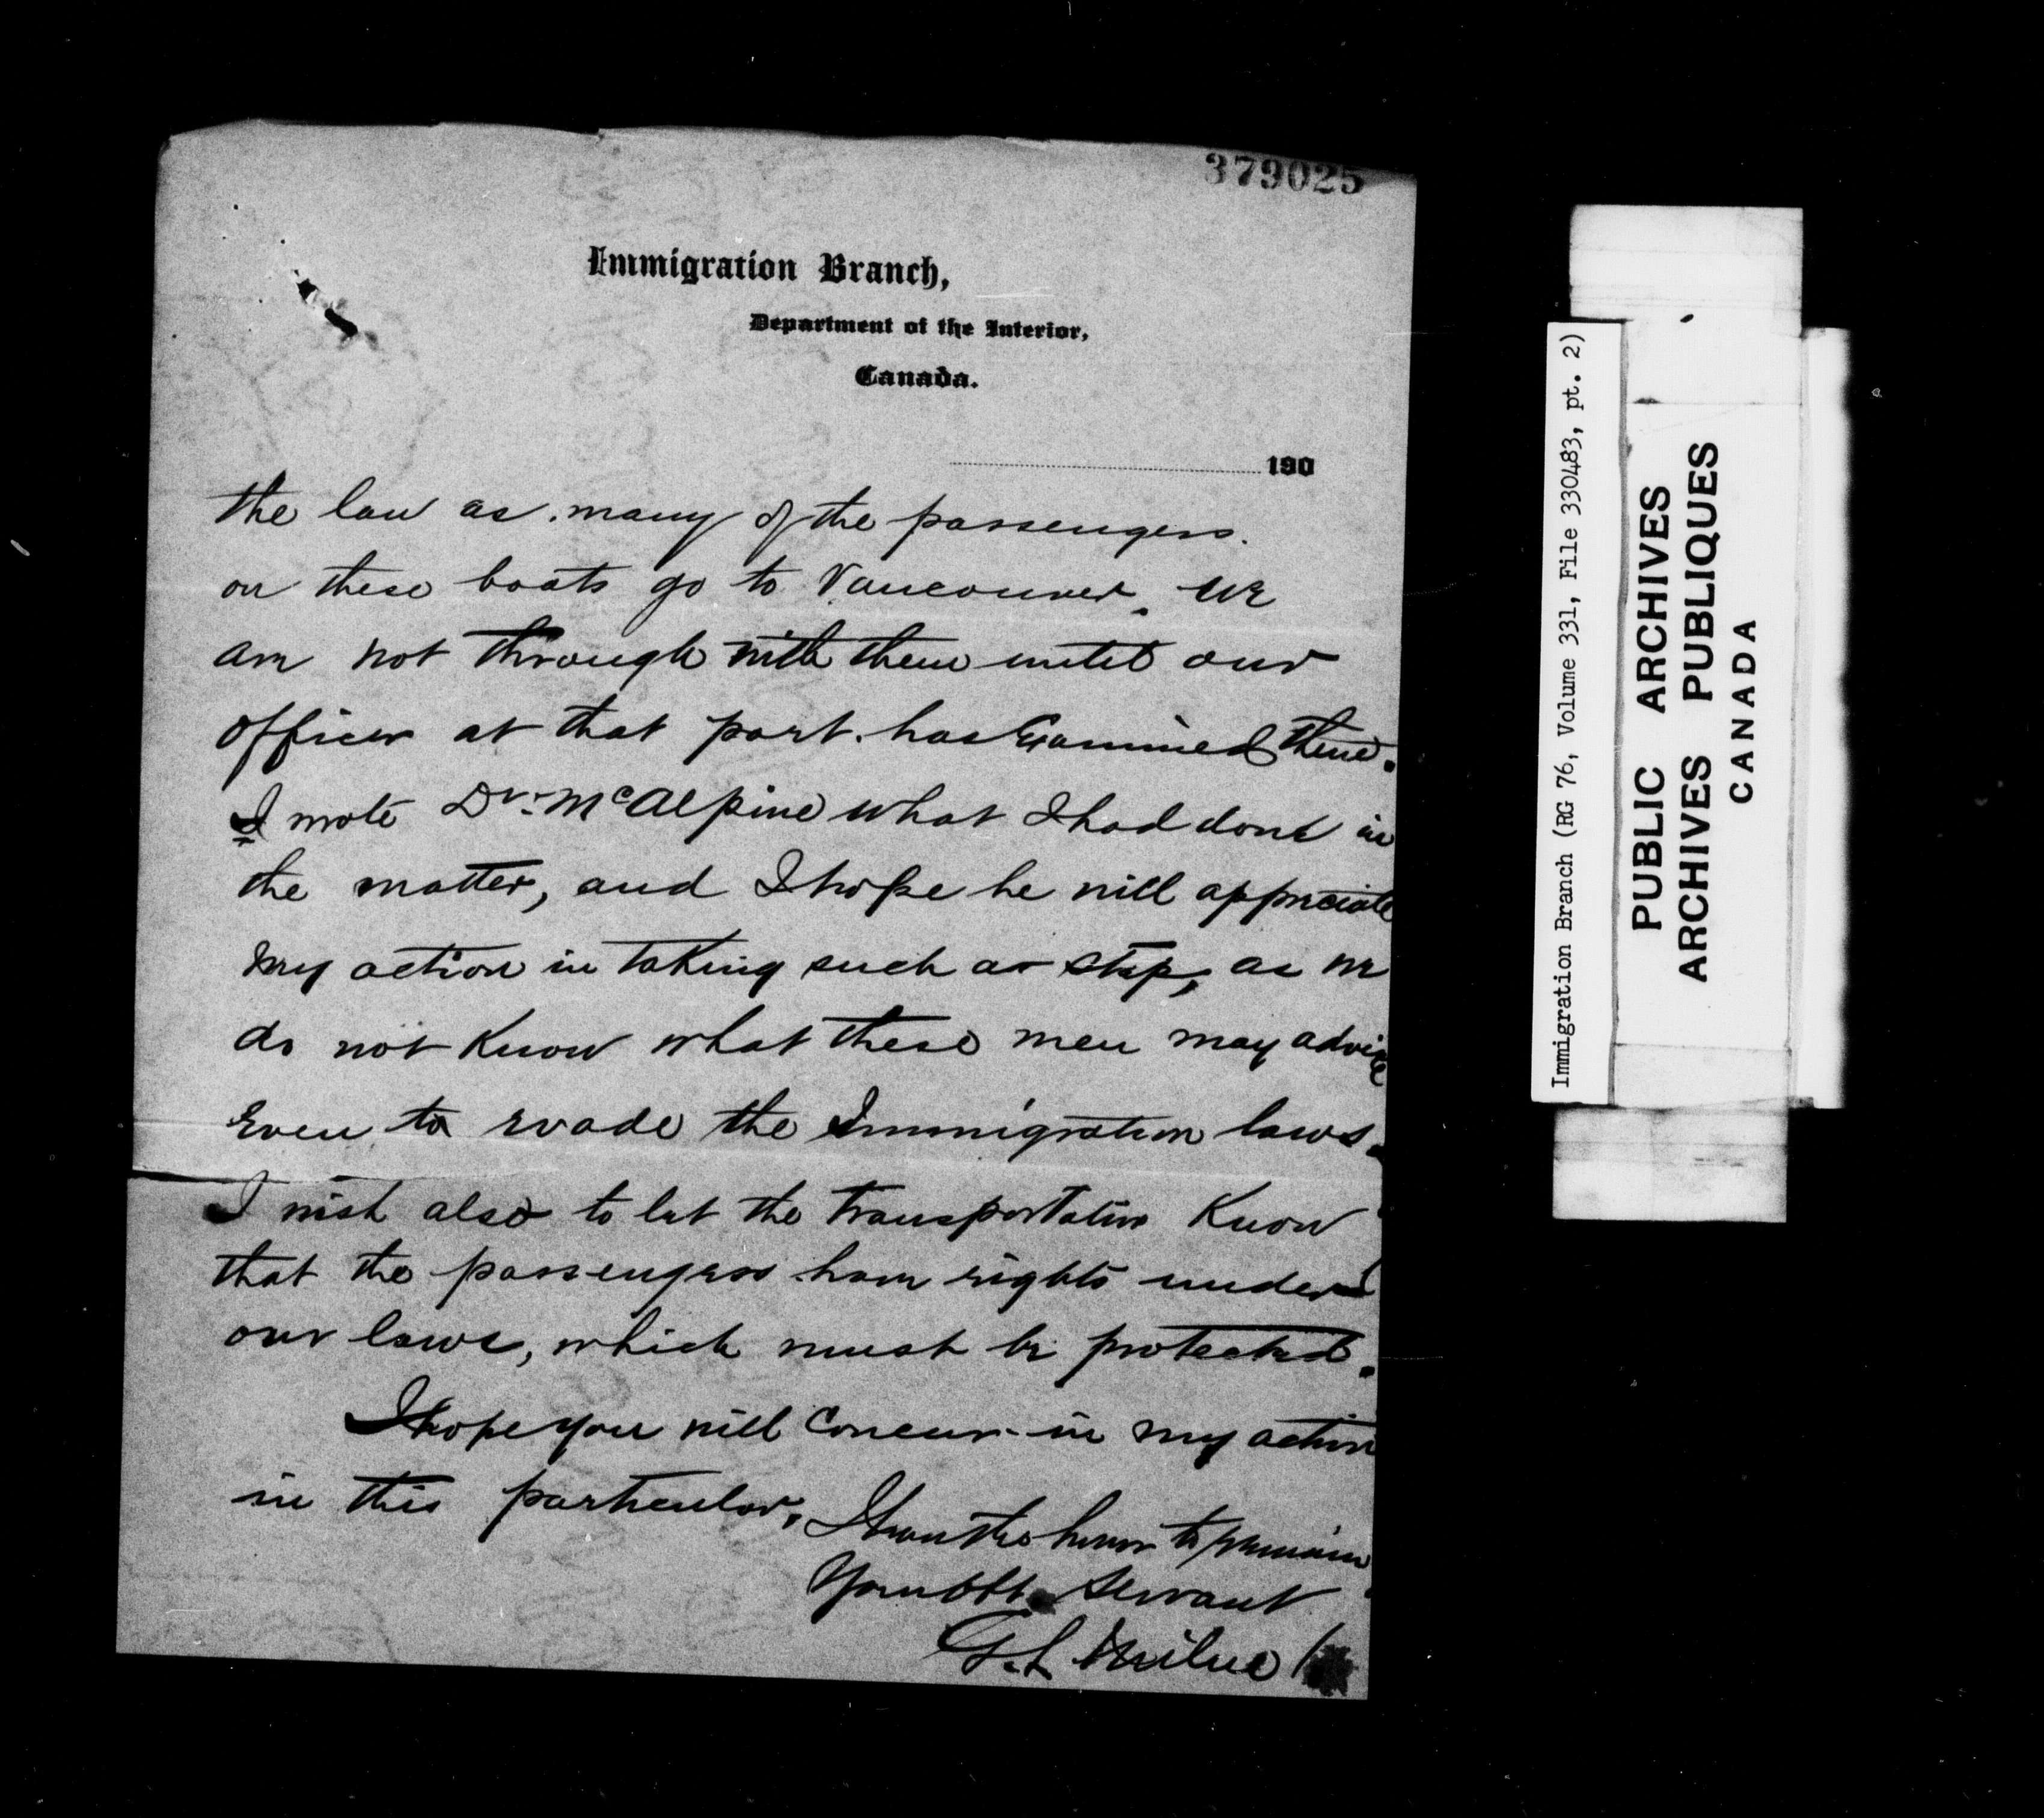 379025
Immigration Branch,
Department of the Interior,
Canada.
190
the law as many of the passengers.
on these boats go to Vancouver. We
are not through with them until our
officer at that port. has Examined them.
I wrote Dr. McAlpine what I had done in
the matter, and I hope he will appreciate
my action in taking such a step, as we
do not know what these men may advise
Even to evade the Immigration laws.
I wish also to let the transportation Know
that the passengers have rights under
our laws, which must be protected.
I hope you will Concur in my action
in this particular,
I have the honor to remain
Your obt. Servant
G.L. Milne
Immigration Branch (RG 76, Volume 331, File 330483, pt. 2)
PUBLIC ARCHIVES
ARCHIVES PUBLIQUES
CANADA